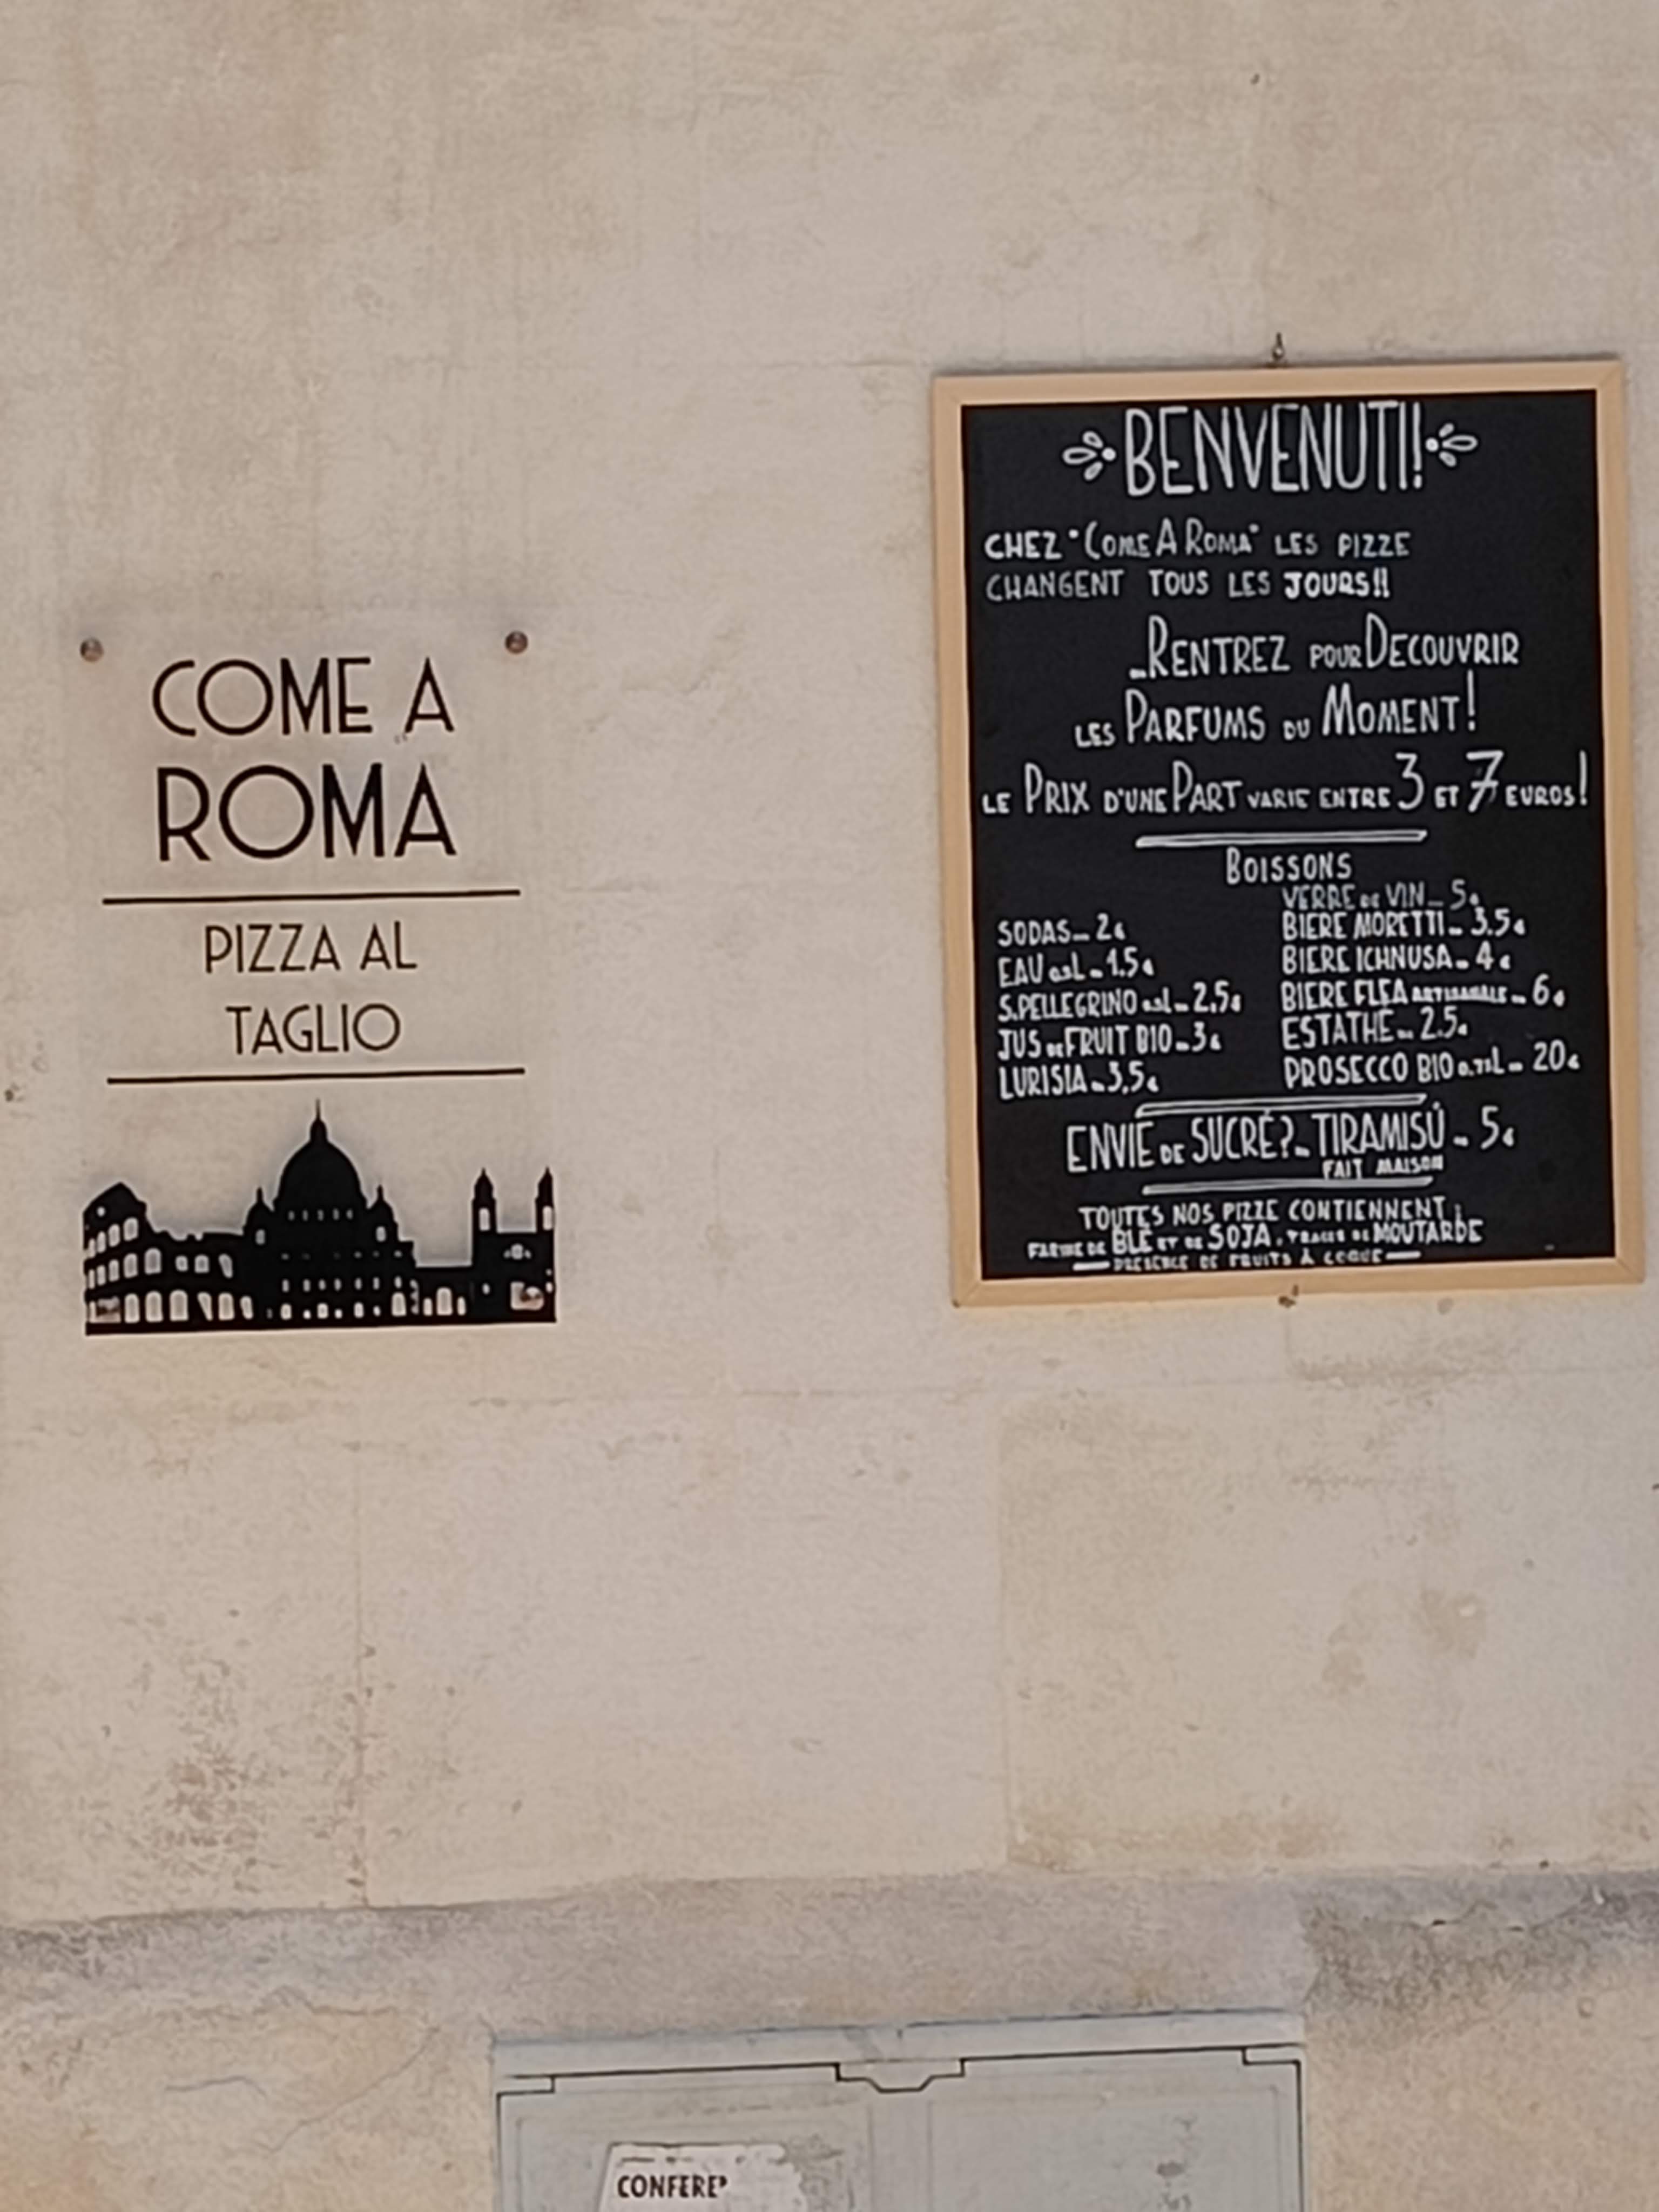 COME A
ROMA
PIZZA AL
TAGLIO
BENVENUTI!
CHEZ "COME A ROMA" LES PIZZE
CHANGENT TOUS LES JOURS!!
RENTREZ POUR DECOUVRIR
LES PARFUMS DU MOMENT!
LE PRIX D'UNE PART VARIE ENTRE 3 ET 7 EUROS!
BOISSONS
SODAS_ 2€
EAU 0.5L_ 1.5€
S.PELLEGRINO 0.5L_ 2,5€
JUS DE FRUIT BIO_ 3€
LURISIA_ 3,5€
VERRE DE VIN_ 5€
BIERE MORETTI_ 3.5€
BIERE ICHNUSA_ 4€
BIERE FLEA ARTISANALE_ 6€
ESTATHE_ 2.5€
PROSECCO BIO 0.75L_ 20€
ENVIE DE SUCRÉ?_ TIRAMISÚ_ 5€
FAIT MAISON
TOUTES NOS PIZZE CONTIENNENT:
FARINE DE BLE ET DE SOJA, TRACES DE MOUTARDE
PRESENCE DE FRUITS À COQUE